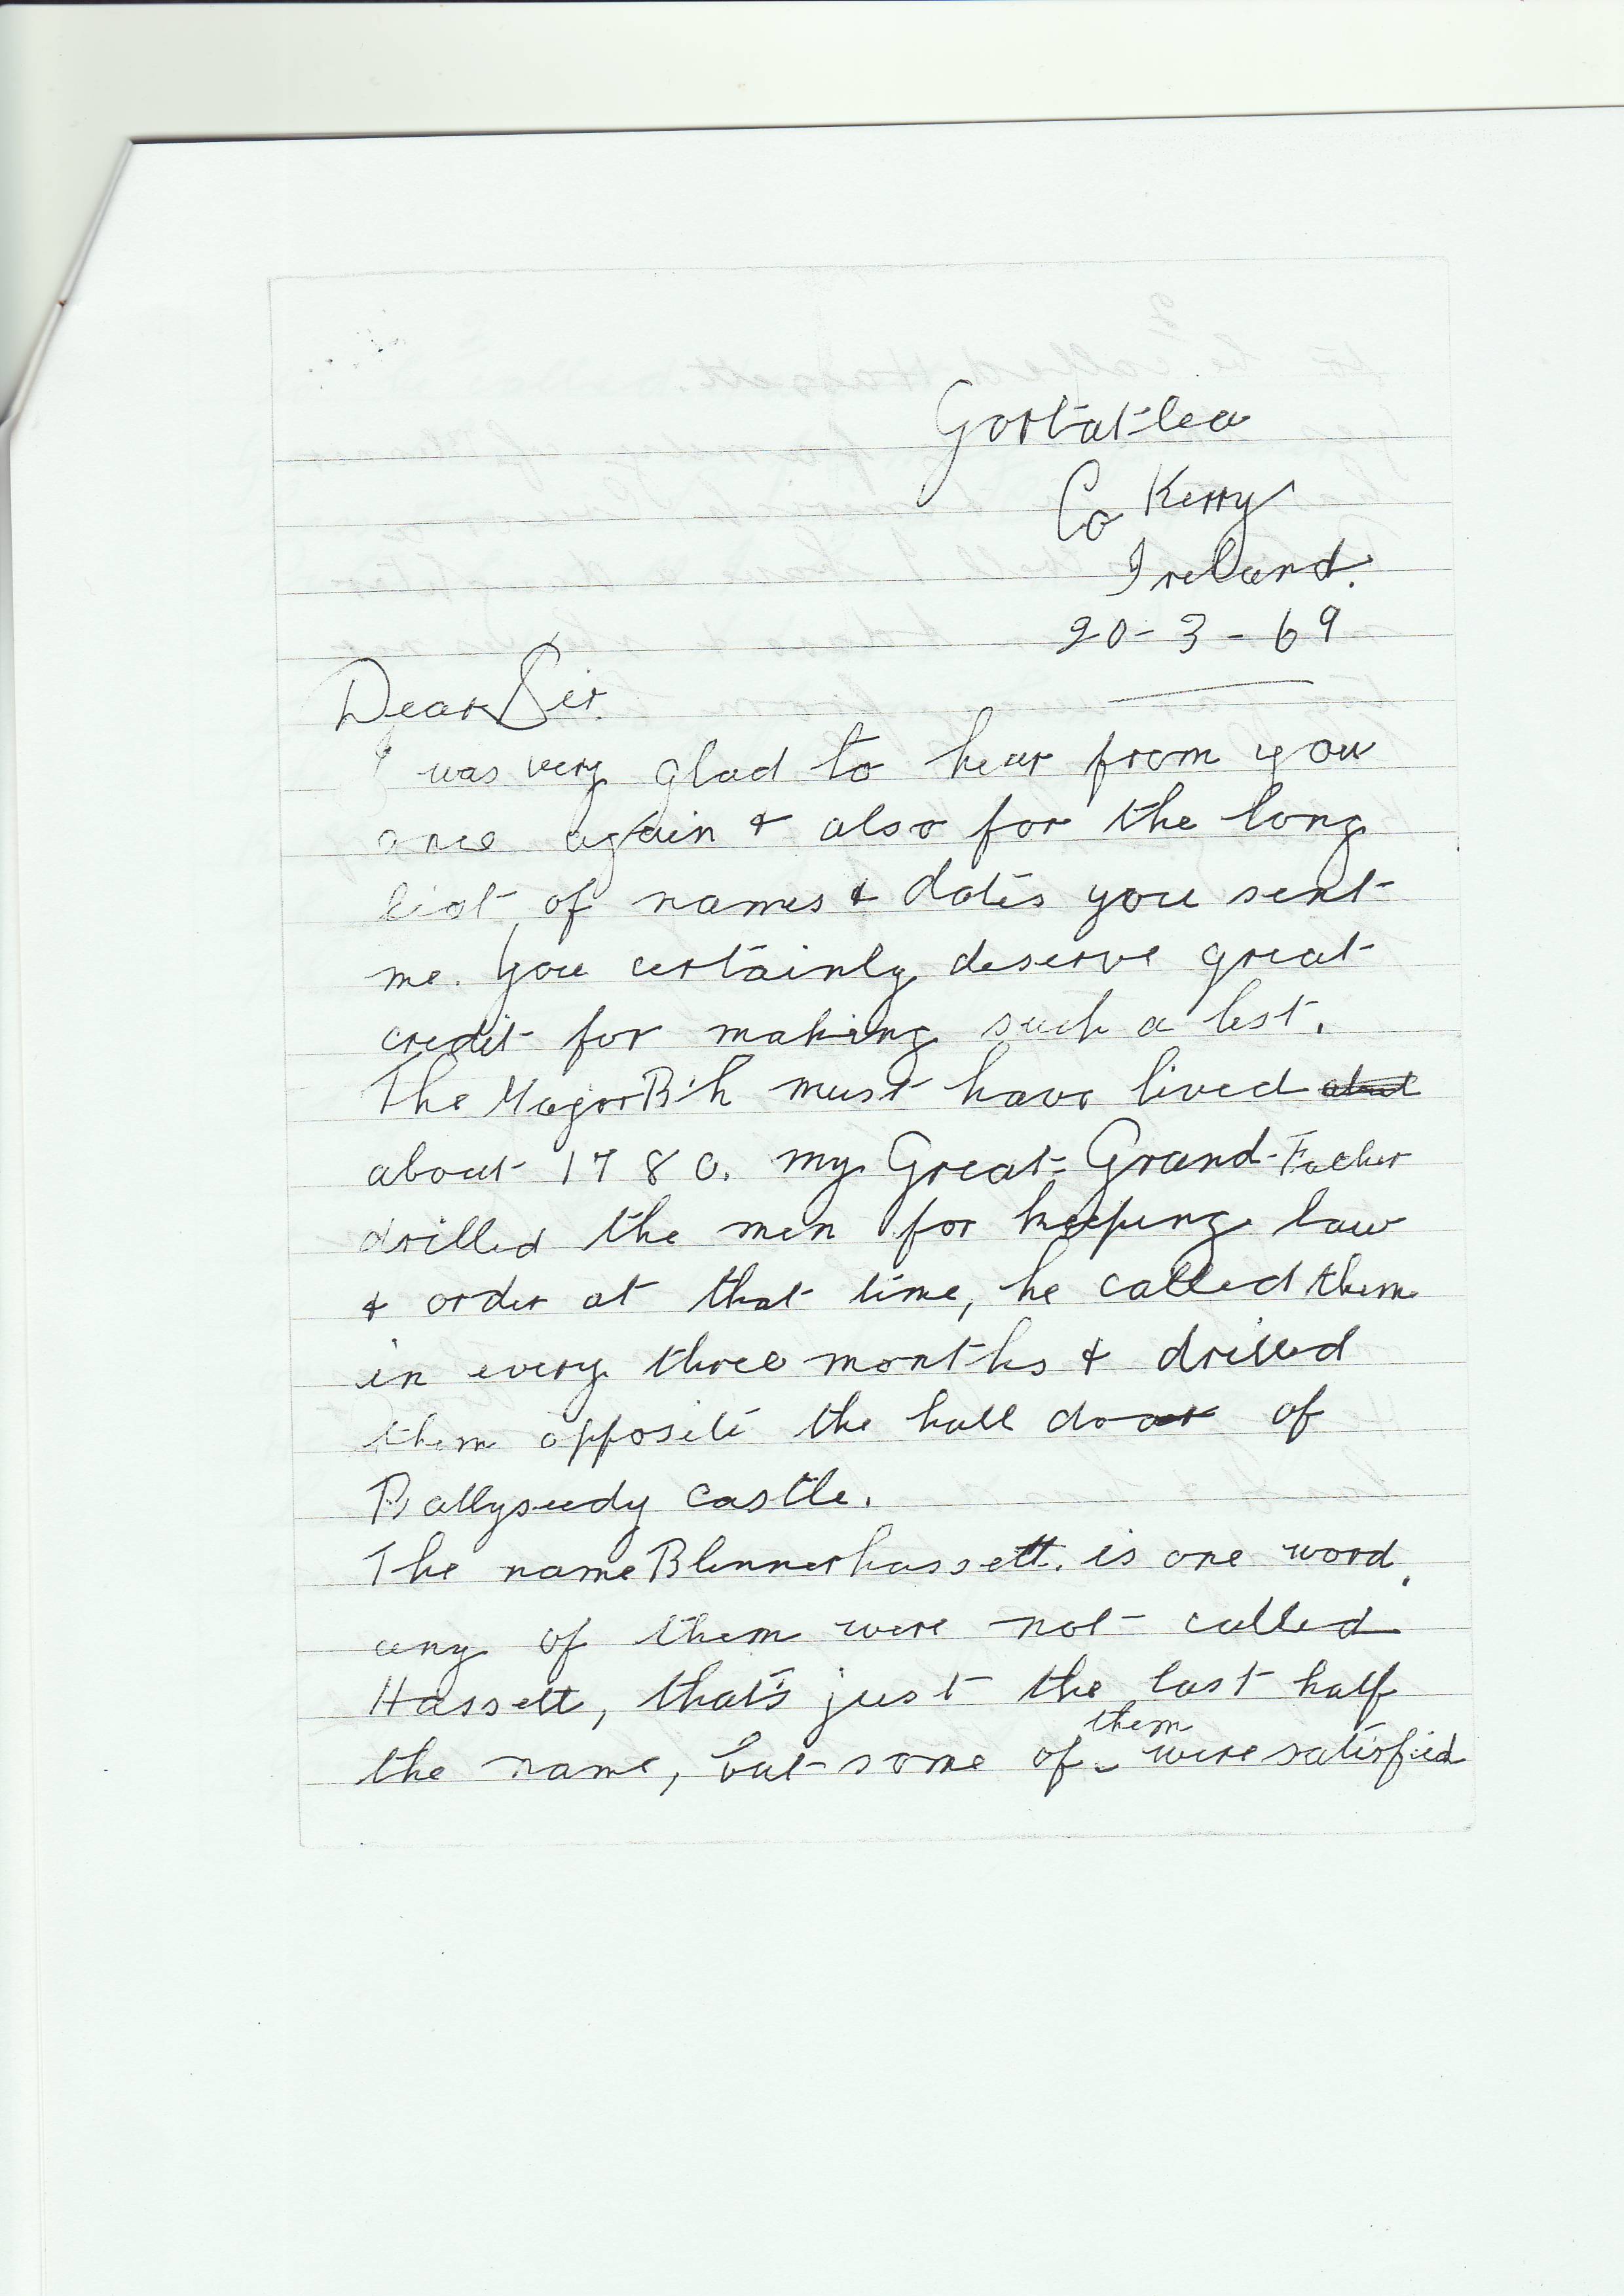 Gortatlea
Co Kerry
Ireland.
20-3-69
Dear Sir.
I was very glad to hear from you
once again & also for the long
list of names & dates you sent
me. You certainly deserve great
credit for making such a list.
The Major B'h must have lived about
about 1780. my Great-Grand-Father
drilled the men for keeping law
& order at that time, he called them
in every three months & drilled
them opposite the hall door of
Ballyseedy castle.
The name Blennerhassett. is one word.
any of them were not called
Hassett, that's just the last half
the name, but some of them were satisfied